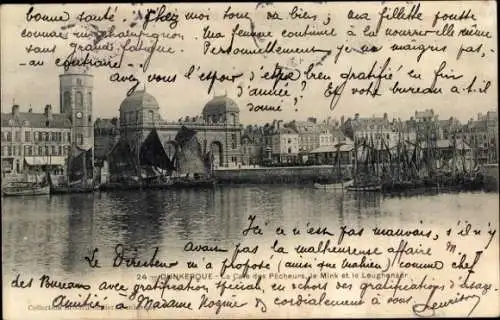 bonne santé. Chez moi tous va bien, ma fillette pousse
comme un champignon. Ma femme continue à la nourrir elle même
sans grande fatigue. Personnellement je ne maigris pas,
au contraire - et vous?
avez-vous l'espoir d'être bien gratifié en fin
d'année? Et votre bureau a-t-il
donné?
24 - DUNKERQUE - La Cale des Pêcheurs, le Mink et le Leughenaer
Ici ce n'est pas mauvais, s'il n'y
avait pas la malheureuse affaire M.
Le Directeur m'a proposé (ainsi que Mahieu) comme chef
des bureaux, avec gratification spéciale en dehors des gratifications d'usage.
Amitié à Madame et cordialement à vous